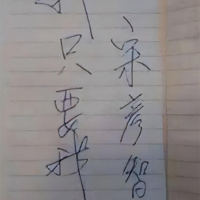 宋彦智
只要我